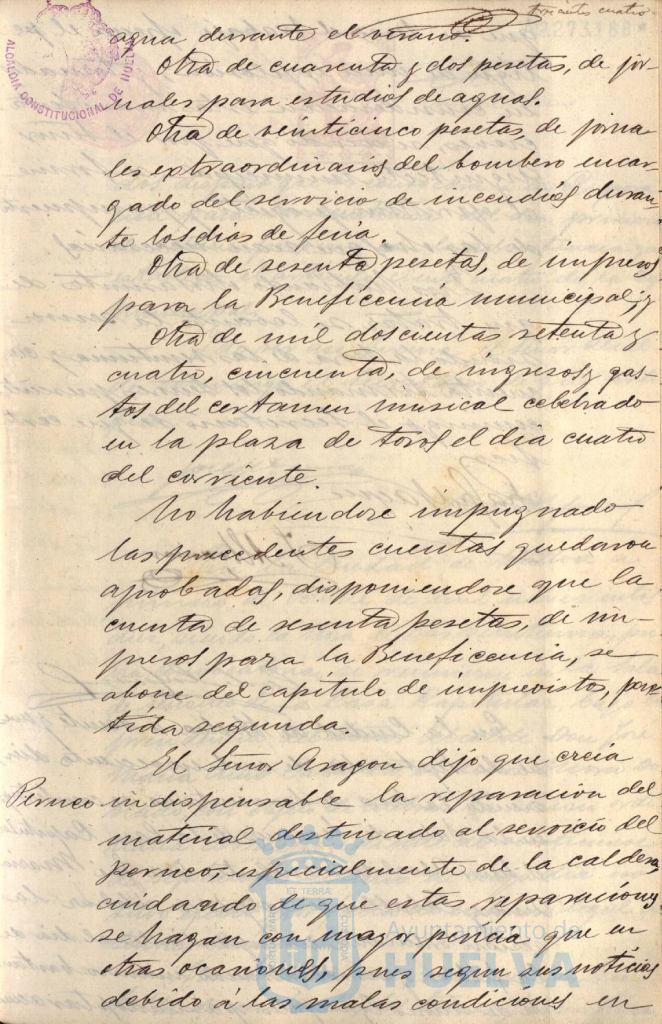 treinta cuatro
agua durante el verano.
Otra de cuarenta y dos pesetas, de jor-
nales para estudios de aguas.
Otra de veinticinco pesetas, de jorna-
les extraordinarios del bombero encar-
gado del servicio de incendios duran-
te los dias de feria.
Otra de sesenta pesetas, de impresos
para la Beneficencia municipal; y
Otra de mil doscientas setenta y
cuatro, cincuenta, de ingresos y gas-
tos del certamen musical celebrado
en la plaza de toros el dia cuatro
del corriente.
No habiendose impugnado
las precedentes cuentas quedaron
aprobadas, disponiendose que la
cuenta de sesenta pesetas, de im-
presos para la Beneficencia, se
abone del capítulo de imprevistos, par-
tida segunda.
El Señor Aragon dijo que creia
indispensable la reparacion del
material destinado al servicio del
, especialmente de la caldera,
cuidando de que estas reparaciones
se hagan con mayor pericia que en
otras ocasiones, pues segun sus noticias
debido á las malas condiciones en
ALCALDIA CONSTITUCIONAL DE HUELVA
Ayuntamiento de
HUELVA